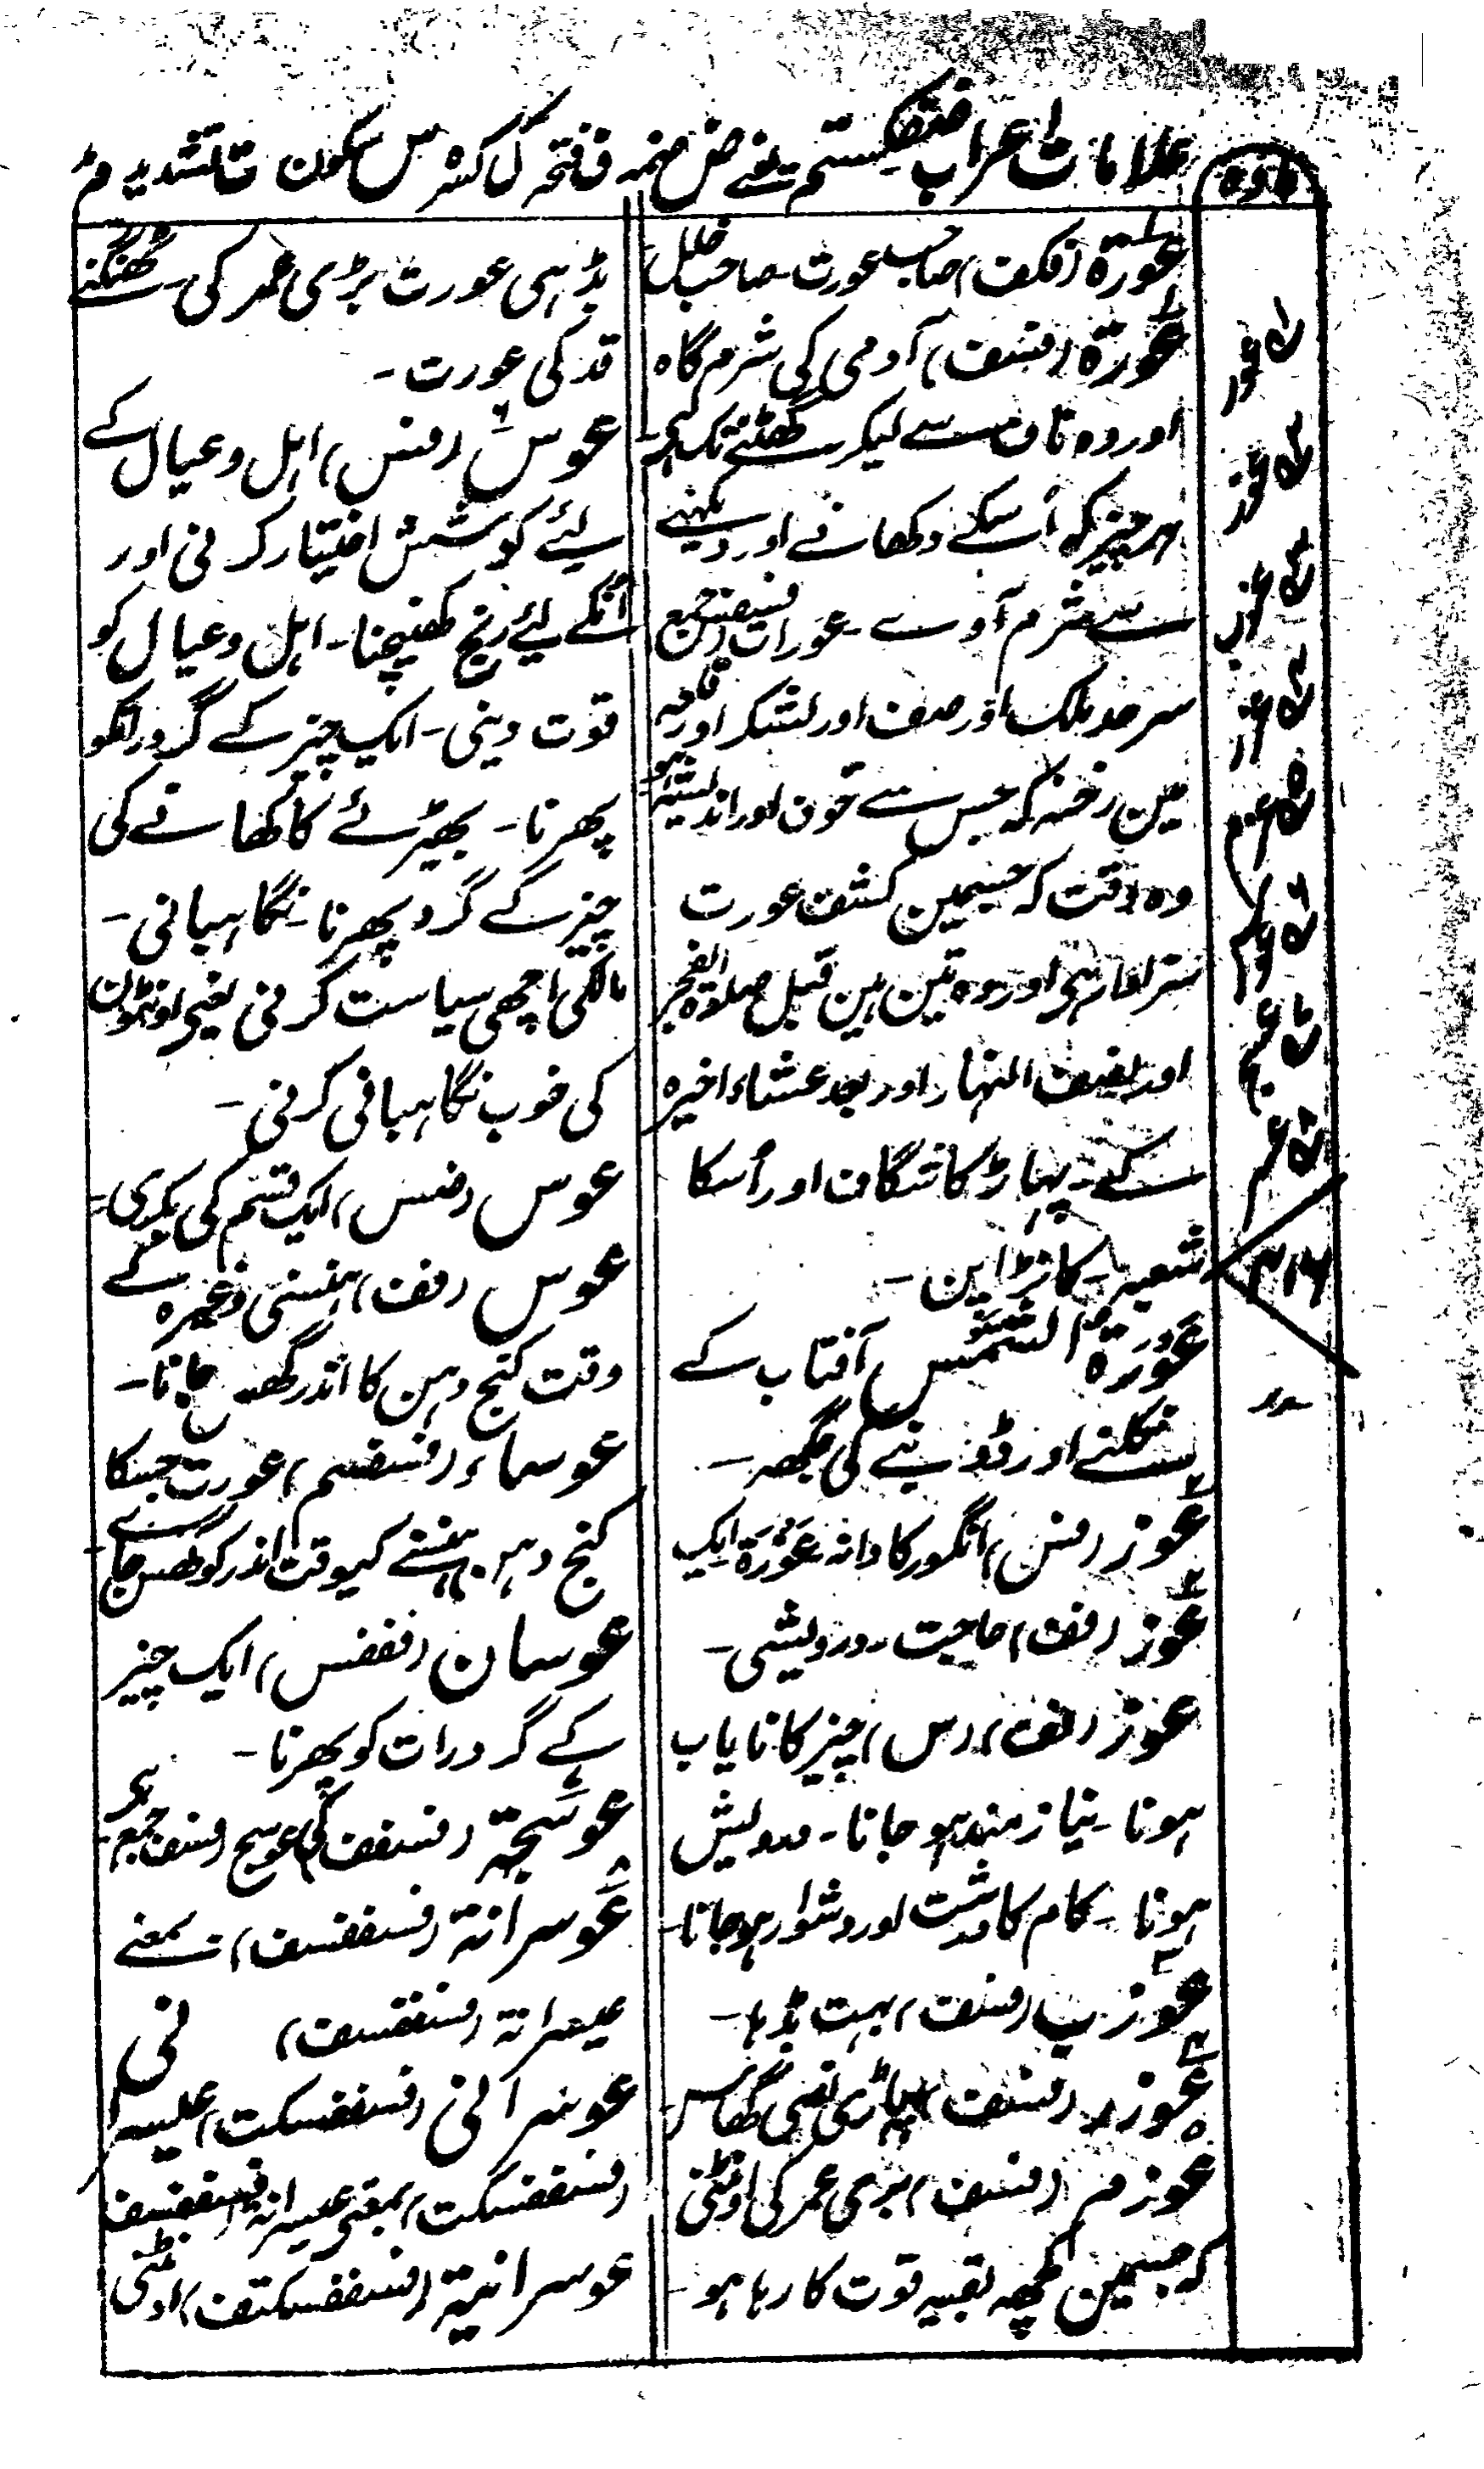 مادہ
علامات اعراب فضکستم یعنے ض ضمہ ف فتحہ ک کسرہ س سکون ت تشدید م مد
عورۃ (فکف) صاحب عورت۔ صاحب خلل
عورۃ (فسف) آدمی کی شرم گاہ
اور وہ ناف سے لیکر گھٹنے تک ہے۔
ہر چیز کہ اُسکے دکھانے اور دیکھنے
سے شرم آوے۔ عورات جمع
سرحد ملک اور صف اور لشکر اور قلعہ
مین رخنہ کہ جس سے خوف اور اندیشہ ہو
وہ وقت کہ جسمین کشف عورت
سزاوار ہی اور وہ تین ہین قبل صلوۃ الفجر
اور نصف النہار اور بعد عشاء اخیرہ
کے۔ پہاڑ کا شگاف اور اُسکا
شعبہ۔ کانڑاپن۔
عورۃ الشمس آفتاب کے
نکلنے اور ڈوبنے کی جگھہ۔
عوز (فس) انگور کا دانہ عوزۃ ایک
عوز (فف) حاجت۔ درویشی۔
عوز (فف) (س) چیز کا نایاب
ہونا۔ نیازمند ہو جانا۔ درویش
ہونا۔ کام کا درشت اور دشوار ہو جانا۔
عوزب (فسف) بہت بڈہا۔
عوزر (فسف) پہاڑی نصی گھاس۔
عوزم (فسف) بڑی عمر کی اونٹنی
کہ جسمین کچھہ بقیہ قوت کا رہا ہو۔
بڈہی عورت بڑی عمر کی ٹھنگنے
قد کی عورت۔
عوس (فس) اہل و عیال کے
لئے کوشش اختیار کرنی اور
اُنکے لئے رنج کھینچنا۔ اہل و عیال کو
قوت دینی۔ ایک چیز کے گرد راتکو
پھرنا۔ بھیڑئے کا کھانے کی
چیز کے گرد پھرنا۔ نگاہبانی۔
مالکی اچھی سیاست کرنی یعنی اونٹون
کی خوب نگاہبانی کرنی۔
عوس (ضس) ایک قسم کی بکری۔
عوس (فف) ہنسنی وغیرہ کے
وقت کنج دہن کا اندر گھس جانا۔
عوساء (فسفسم) عورت جسکا
کنج دہن ہنسنے کیوقت اندر کو گھس جائے
عوسان (فففس) ایک چیز
کے گرد رات کو پھرنا۔
عوسجۃ (فسففف) عوسج (فسف) جمع ہی
عوسرانۃ (فسففسف) بمعنے
عیسرانۃ (فسففسف)
عوسرانی (فسففسکت) عیسرانی
(فسففسکت) بمعنی عیسرانۃ (فسففسف)
عوسرانیۃ (فسففسکتف) اونٹنی
ع و ر
ع و ز
ع ز ب
ع ز ر
ع ز م
ع و س
ع س ج
ع س ر